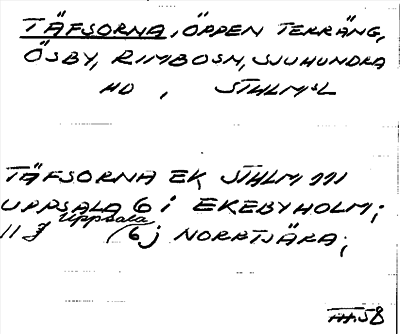 TÄFSORNA, ÖPPEN TERRÄNG,
ÖSBY, RIMBOSN, SJUHUNDRA
HD, STHLMSL
TÄFSORNA EK STHLM 111
UPPSALA 6 i EKEBYHOLM;
Uppsala
11 J (6j NORRTJÄRA;